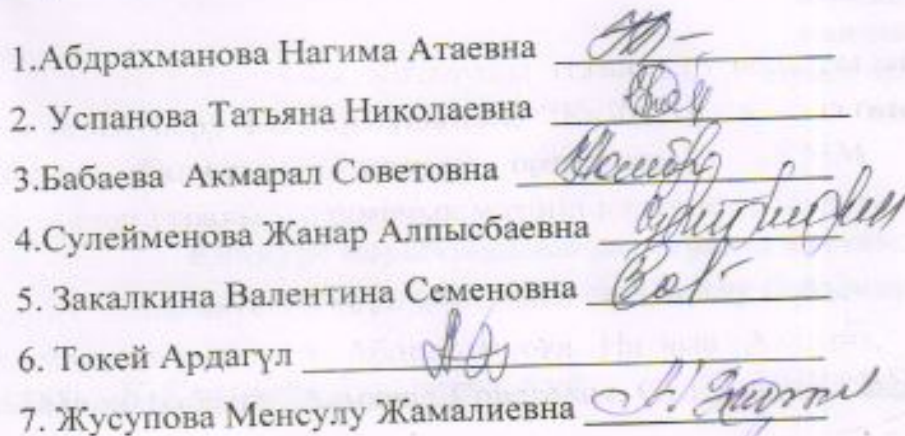 1..Абдрахманова Нагима Атаевна
2. Успанова Татьяна Николаевна
3.Бабаева Акмарал Советовна
4.Сулейменова Жанар Алпысбаевна
5. Закалкина Валентина Семеновна
6. Токей Ардагүл
7. Жусупова Менсулу Жамалиевна